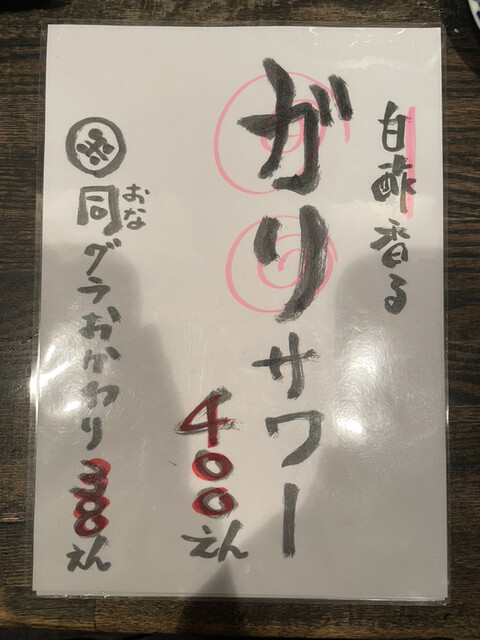 白酢香る
ガリサワー
400えん
おな
同グラおかわり
380えん